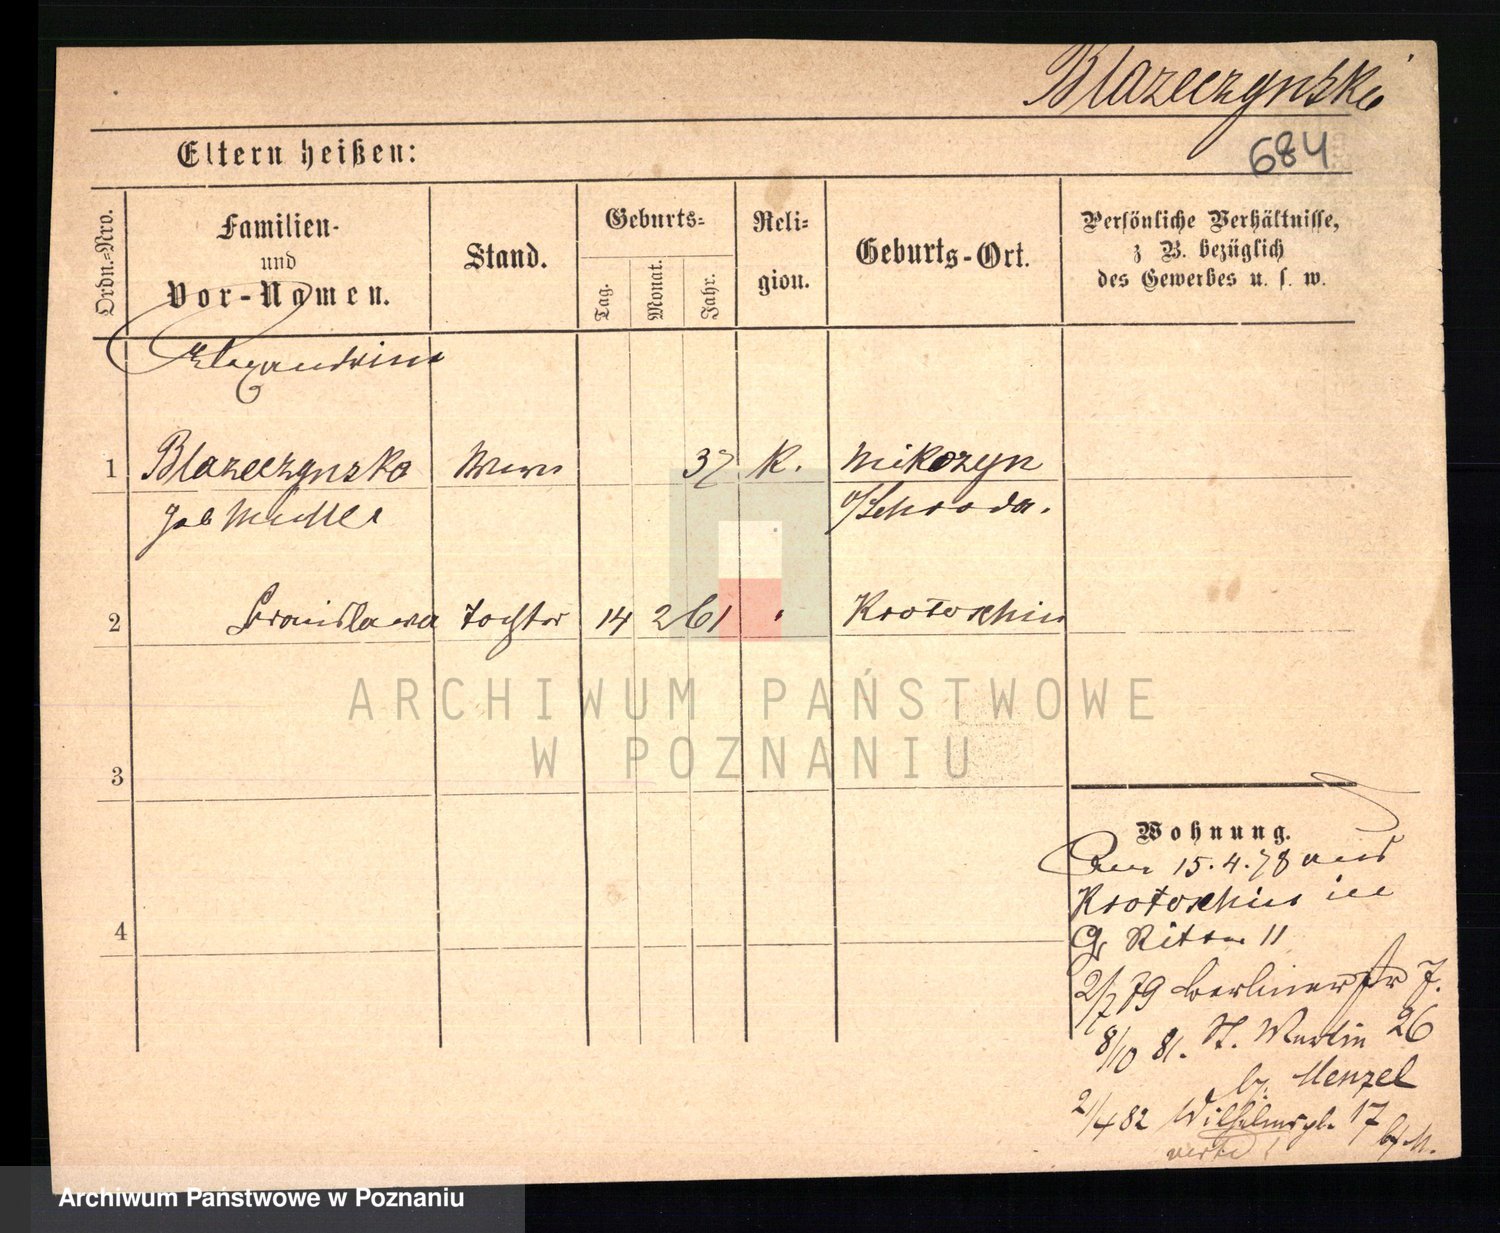 Blazeczynski
684
Eltern heißen:
Ordn.=Nro.
Familien-
und
Vor-Namen.
Stand.
Geburts=
Tag.
Monat.
Jahr.
Reli=
gion.
Geburts-Ort.
Persönliche Verhältnisse,
z B. bezüglich
des Gewerbes u. s. w.
Alexandrine
1 Blazeczynska 37 K. Mikozyn
geb Müller o/Schroda.
2 Bronislawa Tochter 14 2 61 " Krotoschin
3
Wohnung.
15.4.78 aus
Krotoschin in
Gr Ritter 11
4
2/7 79 Berlinerstr 7.
8/10 81. St. Martin 26
by. Menzel
2/4 82 Wilhelmspl. 17 by M.
verte!
ARCHIWUM PAŃSTWOWE
W POZNANIU
Archiwum Państwowe w Poznaniu